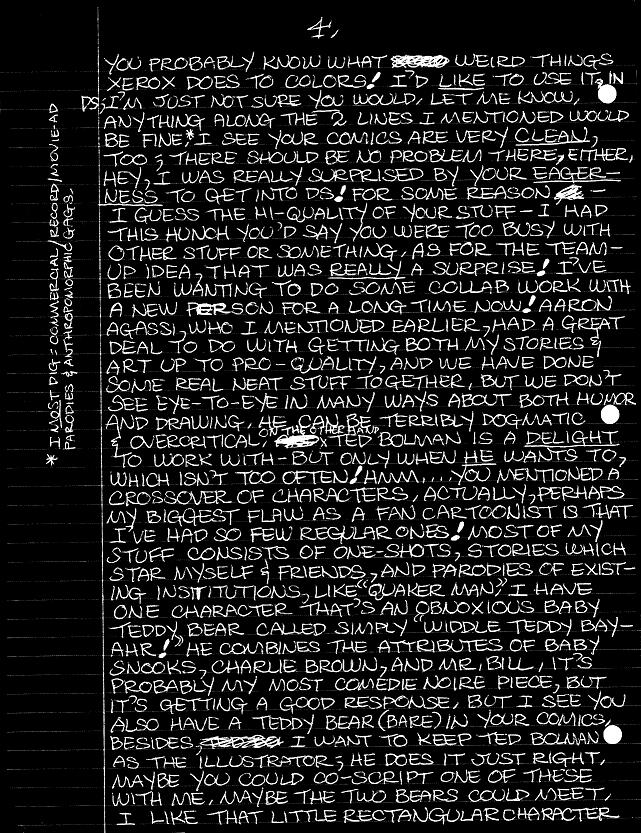 4.
YOU PROBABLY KNOW WHAT WEIRD THINGS
XEROX DOES TO COLORS! I'D LIKE TO USE IT, IN
DS; I'M JUST NOT SURE YOU WOULD. LET ME KNOW,
ANYTHING ALONG THE 2 LINES I MENTIONED WOULD
BE FINE.* I SEE YOUR COMICS ARE VERY CLEAN,
TOO; THERE SHOULD BE NO PROBLEM THERE, EITHER.
HEY, I WAS REALLY SURPRISED BY YOUR EAGER-
NESS TO GET INTO DS! FOR SOME REASON —
I GUESS THE HI-QUALITY OF YOUR STUFF — I HAD
THIS HUNCH YOU'D SAY YOU WERE TOO BUSY WITH
OTHER STUFF OR SOMETHING. AS FOR THE TEAM-
UP IDEA, THAT WAS REALLY A SURPRISE! I'VE
BEEN WANTING TO DO SOME COLLAB WORK WITH
A NEW PERSON FOR A LONG TIME NOW! AARON
AGASSI, WHO I MENTIONED EARLIER, HAD A GREAT
DEAL TO DO WITH GETTING BOTH MY STORIES &
ART UP TO PRO-QUALITY, AND WE HAVE DONE
SOME REAL NEAT STUFF TOGETHER, BUT WE DON'T
SEE EYE-TO-EYE IN MANY WAYS ABOUT BOTH HUMOR
AND DRAWING. HE CAN BE TERRIBLY DOGMATIC
& OVERCRITICAL. ON THE OTHER HAND, TED BOLMAN IS A DELIGHT
TO WORK WITH — BUT ONLY WHEN HE WANTS TO,
WHICH ISN'T TOO OFTEN! HMM.... YOU MENTIONED A
CROSSOVER OF CHARACTERS, ACTUALLY, PERHAPS
MY BIGGEST FLAW AS A FAN CARTOONIST IS THAT
I'VE HAD SO FEW REGULAR ONES! MOST OF MY
STUFF CONSISTS OF ONE-SHOTS, STORIES WHICH
STAR MYSELF & FRIENDS, AND PARODIES OF EXIST-
ING INSTITUTIONS, LIKE "QUAKER MAN". I HAVE
ONE CHARACTER THAT'S AN OBNOXIOUS BABY
TEDDY BEAR CALLED SIMPLY "WIDDLE TEDDY BAY-
AHR!" HE COMBINES THE ATTRIBUTES OF BABY
SNOOKS, CHARLIE BROWN, AND MR. BILL, IT'S
PROBABLY MY MOST COMEDIE NOIRE PIECE, BUT
IT'S GETTING A GOOD RESPONSE, BUT I SEE YOU
ALSO HAVE A TEDDY BEAR (BARE) IN YOUR COMICS,
BESIDES I WANT TO KEEP TED BOLMAN
AS THE ILLUSTRATOR; HE DOES IT JUST RIGHT,
MAYBE YOU COULD CO-SCRIPT ONE OF THESE
WITH ME, MAYBE THE TWO BEARS COULD MEET,
I LIKE THAT LITTLE RECTANGULAR CHARACTER
* I MOST DIG: COMMERCIAL/RECORD/MOVIE-AD
PARODIES & ANTHROPOMORPHIC GAGS.